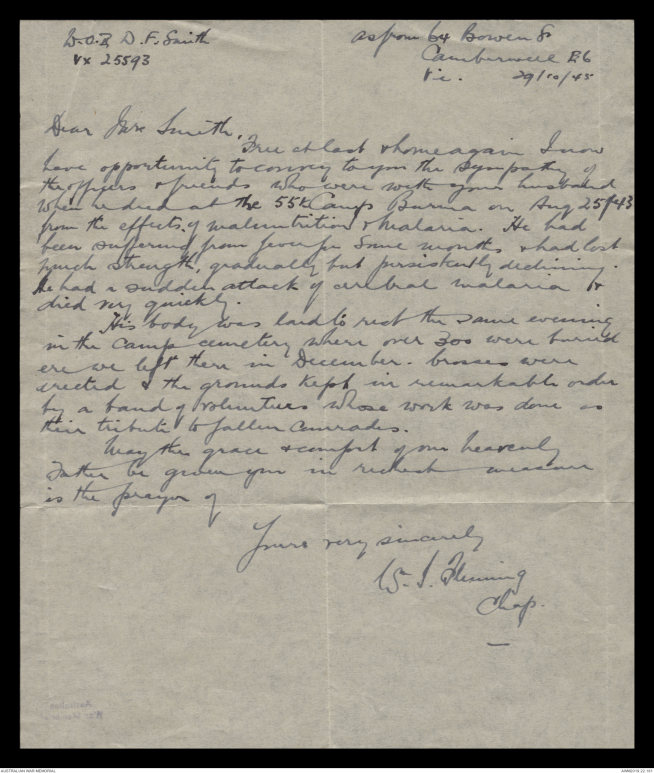 W.O.2 D.F. Smith
VX 25593
as from 64 Bowen St
Camberwell E.6
Vic. 29/10/45
Dear Mrs Smith,
Free at last & home again I now
have opportunity to convey to you the sympathy of
the officers & friends who were with your husband
when he died at the 55k Camp Burma on Aug 25/43
from the effects of malnutrition & malaria. He had
been suffering from fever for some months & had lost
much strength, gradually but persistently declining.
He had a sudden attack of cerebral malaria &
died very quickly.
His body was laid to rest the same evening
in the camp cemetery where over 300 were buried
ere we left there in December. Crosses were
erected & the grounds kept in remarkable order
by a band of volunteers whose work was done as
their tribute to fallen comrades.
May the grace & comfort of your heavenly
Father be given you in richest measure
is the prayer of
Yours very sincerely
Fleming
Chap.
Australian
War Memorial
AUSTRALIAN WAR MEMORIAL